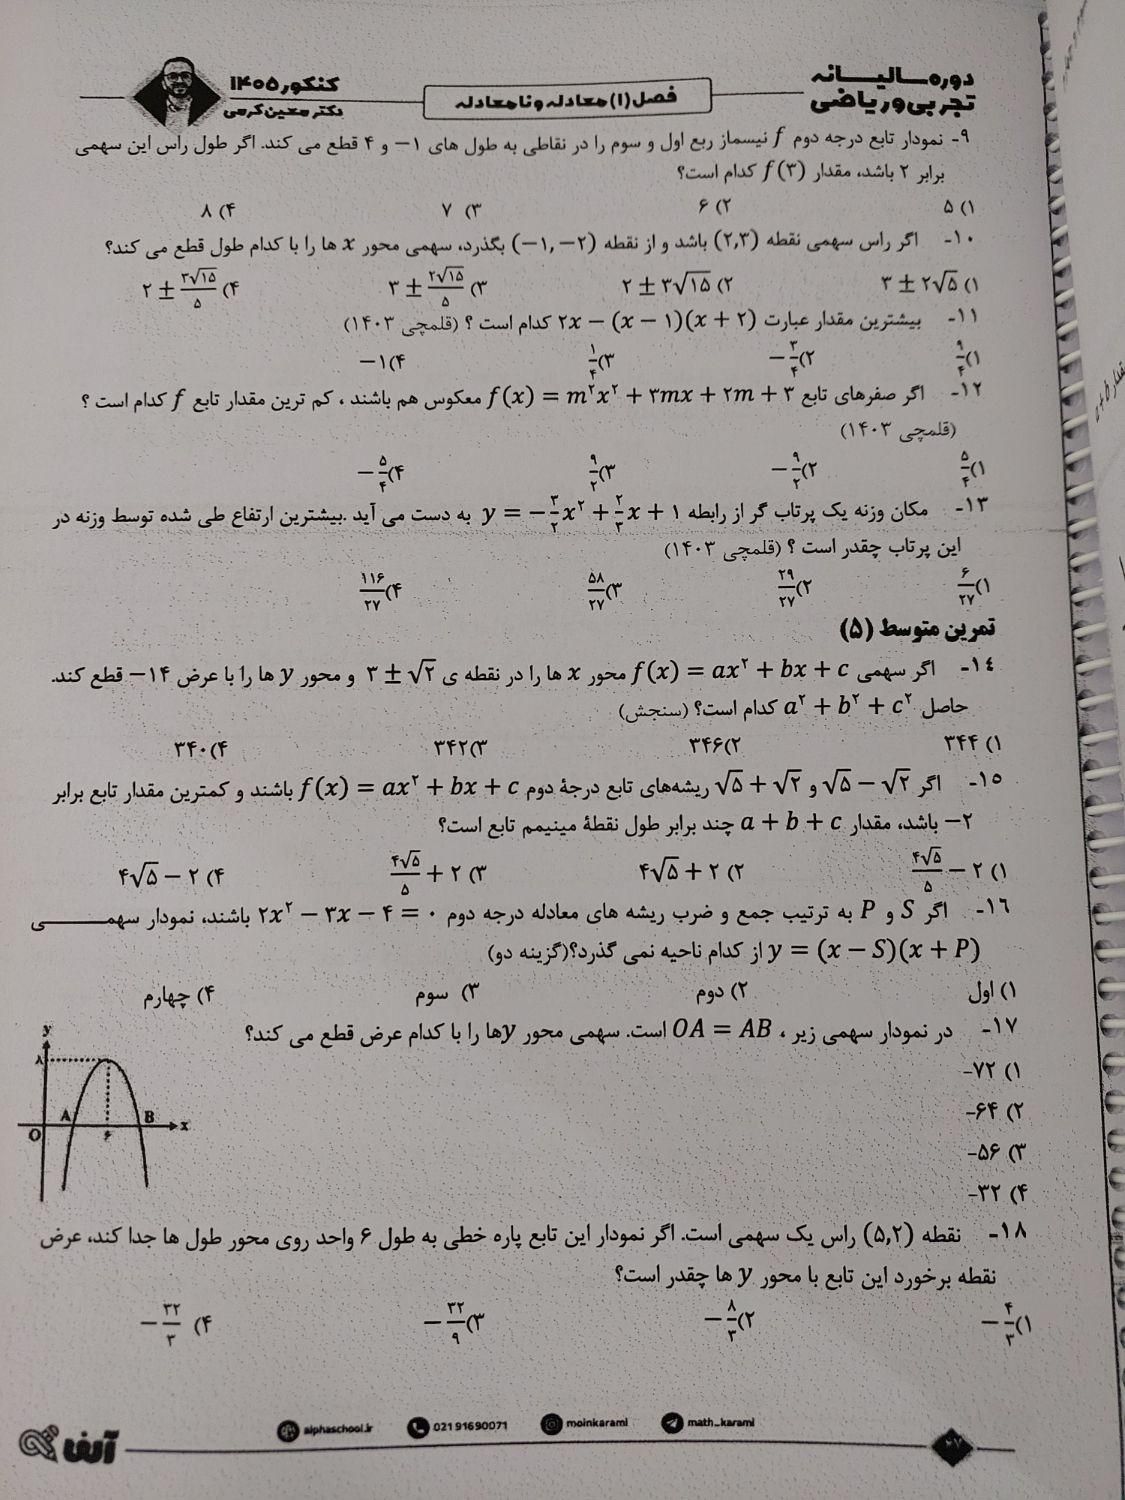 دوره سالیانه
تجربی و ریاضی
فصل (۱) معادله و نامعادله
کنکور ۱۴۰۵
دکتر معین کرمی
۹- نمودار تابع درجه دوم f نیسماز ربع اول و سوم را در نقاطی به طول های ۱− و ۴ قطع می کند. اگر طول راس این سهمی
برابر ۲ باشد، مقدار f(۳) کدام است؟
۱) ۵ ۲) ۶ ۳) ۷ ۴) ۸
۱۰- اگر راس سهمی نقطه (۲,۳) باشد و از نقطه (−۱,−۲) بگذرد، سهمی محور x ها را با کدام طول قطع می کند؟
۱) ۳ ± ۲√۵ ۲) ۲ ± ۳√۱۵ ۳) ۳ ± ۲√۱۵/۵ ۴) ۲ ± ۳√۱۵/۵
۱۱- بیشترین مقدار عبارت ۲x − (x − ۱)(x + ۲) کدام است ؟ (قلمچی ۱۴۰۳)
۱) ۹/۴ ۲) −۳/۴ ۳) ۱/۴ ۴) −۱
۱۲- اگر صفرهای تابع f(x) = m²x² + ۳mx + ۲m + ۳ معکوس هم باشند ، کم ترین مقدار تابع f کدام است ؟
(قلمچی ۱۴۰۳)
۱) ۵/۴ ۲) −۹/۲ ۳) ۹/۲ ۴) −۵/۴
۱۳- مکان وزنه یک پرتاب گر از رابطه y = −۳/۲x² + ۲/۳x + ۱ به دست می آید .بیشترین ارتفاع طی شده توسط وزنه در
این پرتاب چقدر است ؟ (قلمچی ۱۴۰۳)
۱) ۶/۲۷ ۲) ۲۹/۲۷ ۳) ۵۸/۲۷ ۴) ۱۱۶/۲۷
تمرین متوسط (۵)
۱۴- اگر سهمی f(x) = ax² + bx + c محور x ها را در نقطه ی ۳ ± √۲ و محور y ها را با عرض ۱۴− قطع کند.
حاصل a² + b² + c² کدام است؟ (سنجش)
۱) ۳۴۴ ۲) ۳۴۶ ۳) ۳۴۲ ۴) ۳۴۰
۱۵- اگر √۵ − √۲ و √۵ + √۲ ریشه‌های تابع درجهٔ دوم f(x) = ax² + bx + c باشند و کمترین مقدار تابع برابر
−۲ باشد، مقدار a + b + c چند برابر طول نقطهٔ مینیمم تابع است؟
۱) ۲ − ۴√۵/۵ ۲) ۲ + ۴√۵ ۳) ۲ + ۴√۵/۵ ۴) ۲ − ۴√۵
۱۶- اگر S و P به ترتیب جمع و ضرب ریشه های معادله درجه دوم ۲x² − ۳x − ۴ = ۰ باشند، نمودار سهمی
y = (x − S)(x + P) از کدام ناحیه نمی گذرد؟(گزینه دو)
۱) اول ۲) دوم ۳) سوم ۴) چهارم
۱۷- در نمودار سهمی زیر ، OA = AB است. سهمی محور yها را با کدام عرض قطع می کند؟
۱) ۷۲-
۲) ۶۴-
۳) ۵۶-
۴) ۳۲-
y
۸
A
B
x
O
۶
۱۸- نقطه (۵,۲) راس یک سهمی است. اگر نمودار این تابع پاره خطی به طول ۶ واحد روی محور طول ها جدا کند، عرض
نقطه برخورد این تابع با محور y ها چقدر است؟
۱) −۴/۳ ۲) −۸/۳ ۳) −۳۲/۹ ۴) −۳۲/۳
alphaschool.ir 021 91690071 moinkarami math_karami
الف
۲۷